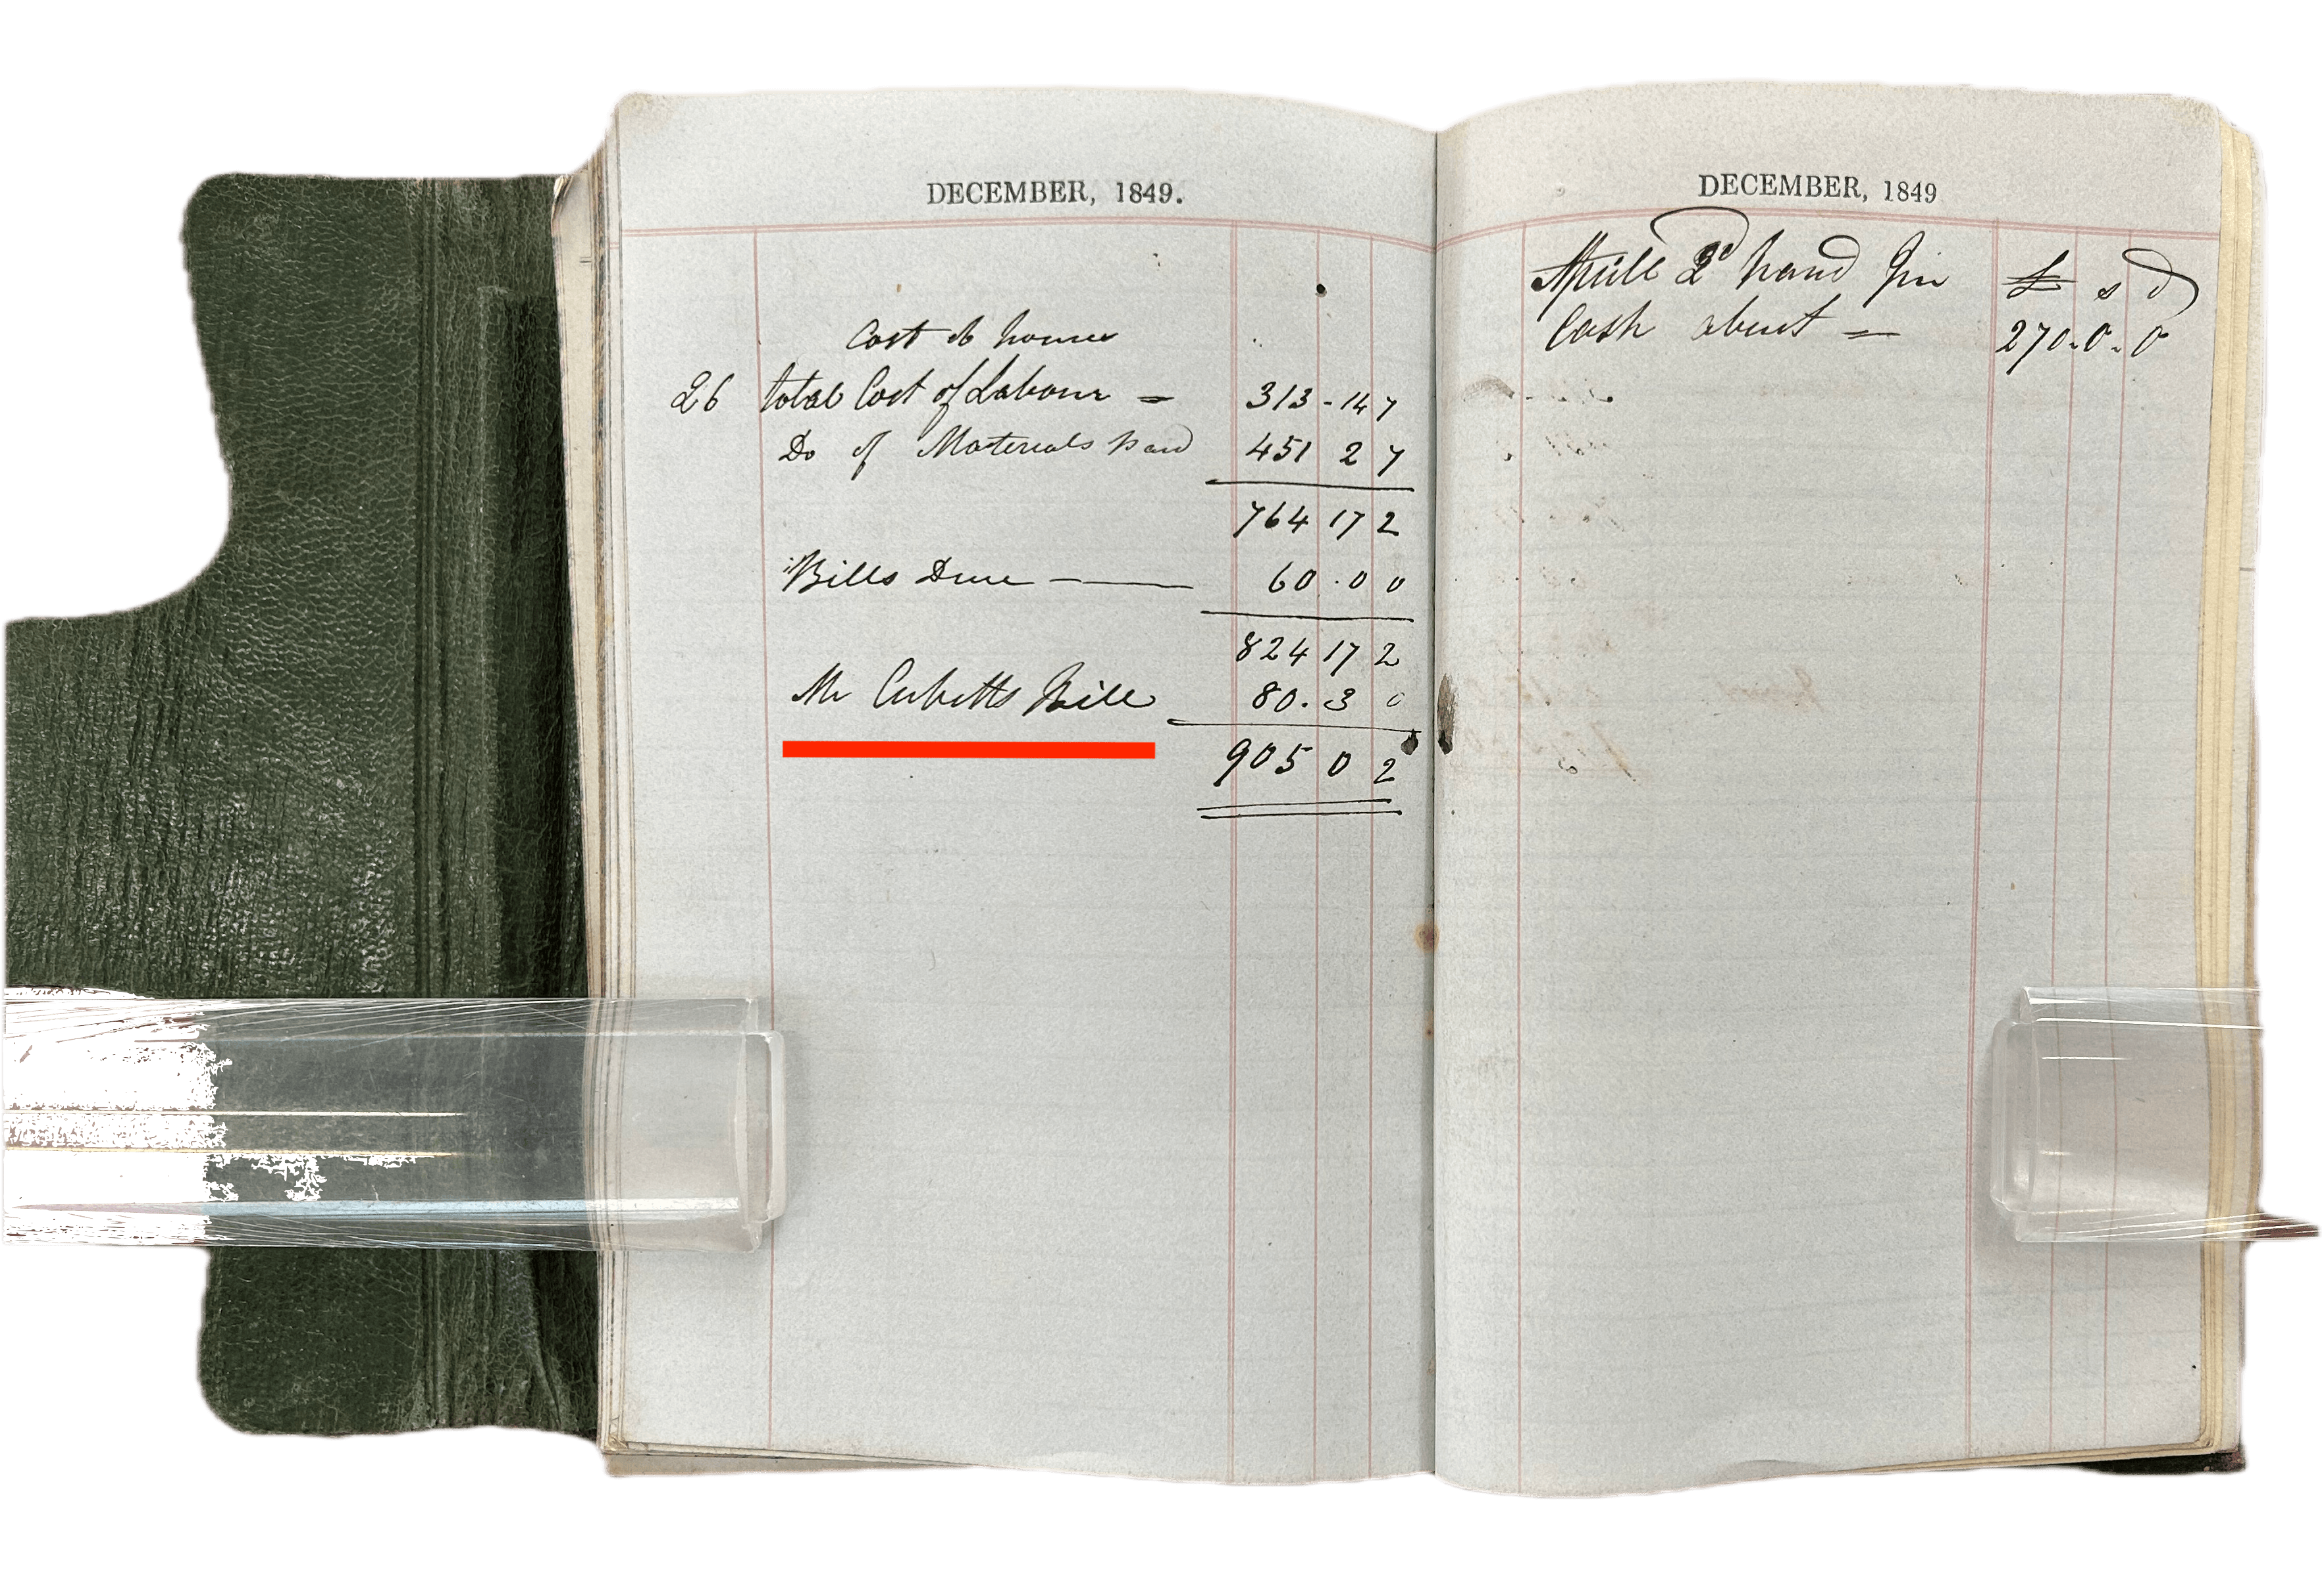 DECEMBER, 1849.
Cost of house
26 Total Cost of Labour = 313 - 14 7
Do of Materials paid 451 2 7
764 17 2
Bills Due — 60 . 0 0
824 17 2
Mr Cubitts Bill 80 . 3 0
905 0 2
DECEMBER, 1849
Aprill hand Jin £ s d
Cash about = 270 . 0 . 0